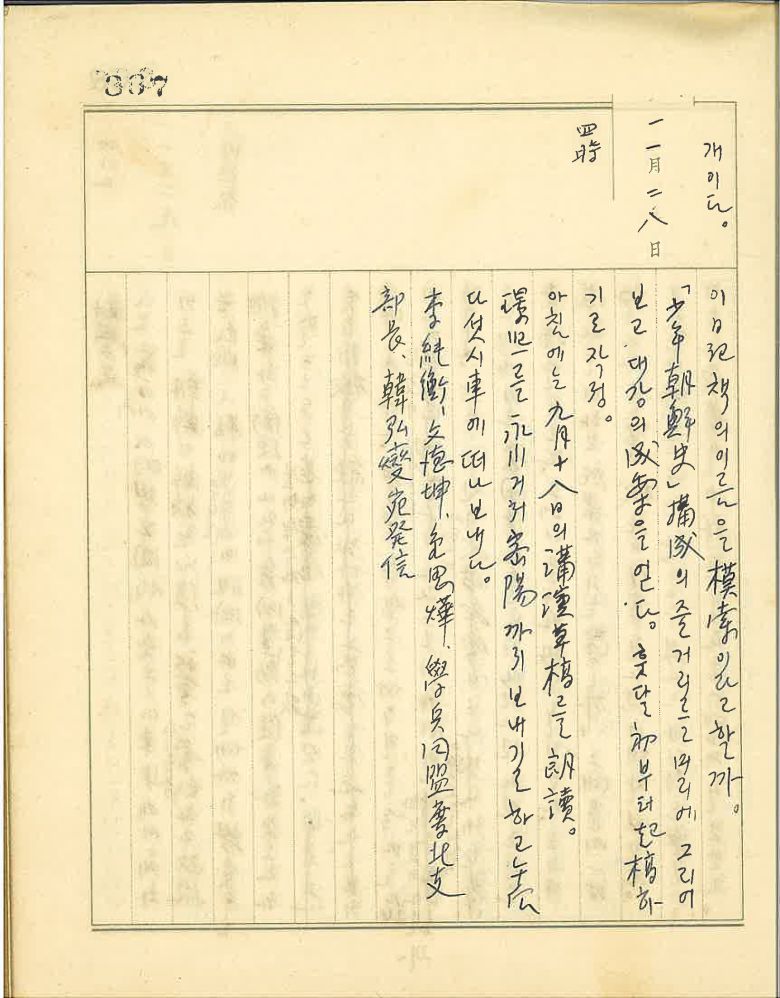 367
개이다。
一一月二八日
四時
이 日記책의 이름을 模索이라고 할까。
「少年朝鮮史」構成의 줄거리르 머리에 그리어
보고 대강의 成案을 얻다。훗달 初부터 起稿하
기로 작정。
아침에는 九月十八日의 講演草稿를 朗讀。
를 永川거쳐 密陽까지 보내기로 하고
다섯시 車에 떠나보내다。
李純衡、文德坤、思燁、學兵同盟慶北支
部長、韓弘燮宛発信